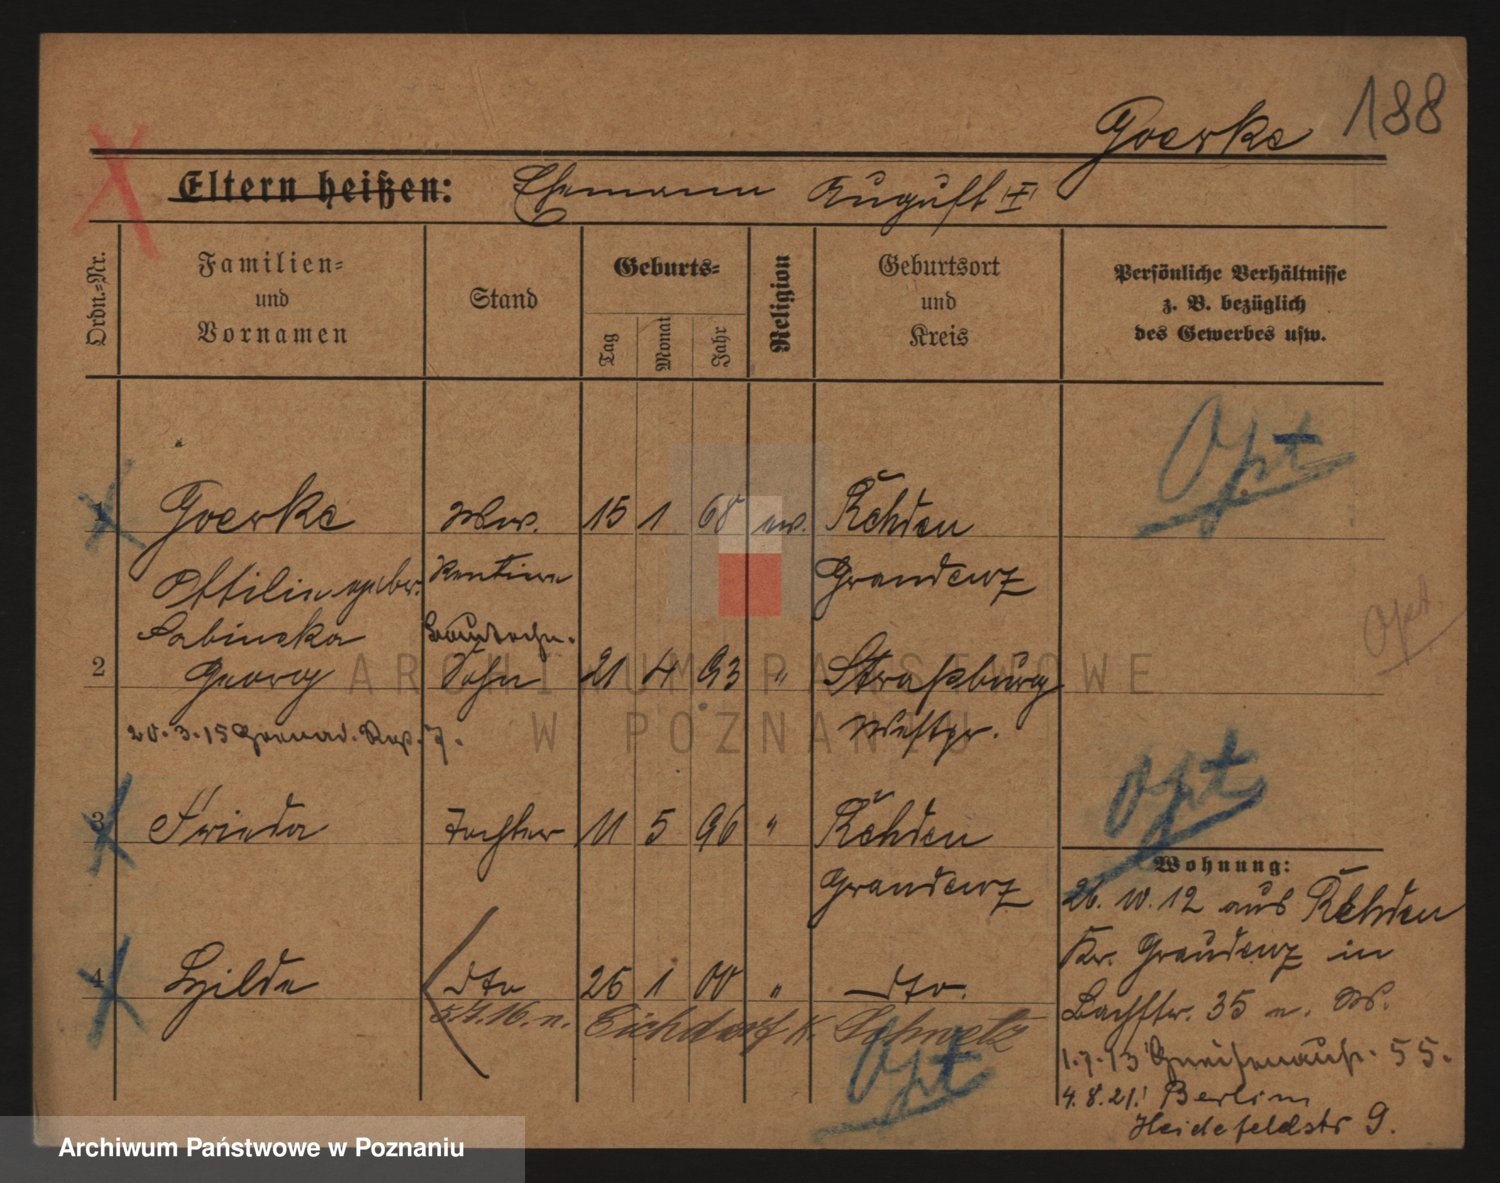 188
Goerke
Eltern heißen: Ehemann August II
Ordn.=Nr.
Familien=
und
Vornamen
Stand
Geburts=
Tag
Monat
Jahr
Religion
Geburtsort
und
Kreis
Persönliche Verhältnisse
z. B. bezüglich
des Gewerbes usw.
Opt
1 Goerke Ww. 15 1 68 ev. Rehden
Ottilie geb. Rentiere Graudenz
Sabinska
2 Georg Sohn 21 4 93 " Straßburg
Westpr.
20.3.15 Grenad. Reg. 7.
Opt.
Opt
3 Frieda Tochter 11 5 96 " Rehden
Graudenz
4 Hilde dto 26 1 00 " dto.
5.4.16. n. Eichdorf K. Schwetz
Opt
Wohnung:
26.10.12 aus Rehden
Kr. Graudenz in
Bachstr. 35 n. W.
1.7.13 Gneisenaustr. 55.
4.8.21. Berlin
Heidefeldstr 9.
ARCHIWUM PAŃSTWOWE
W POZNANIU
Archiwum Państwowe w Poznaniu